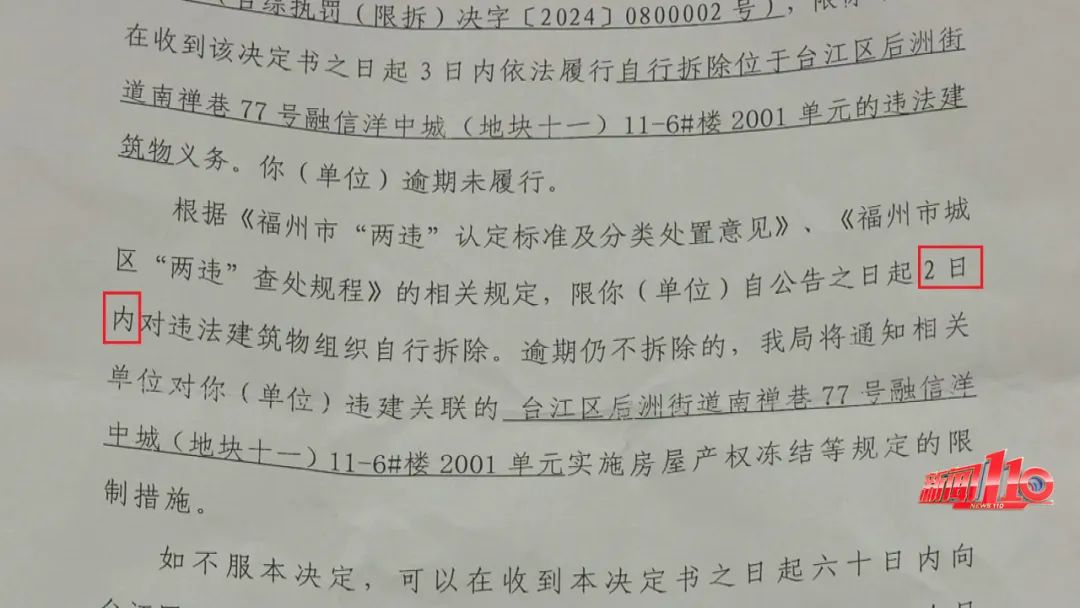 综执罚（限拆）决字〔2024〕0800002 号），限你
在收到该决定书之日起 3 日内依法履行自行拆除位于台江区后洲街
道南禅巷 77 号融信洋中城（地块十一）11-6#楼 2001 单元的违法建
筑物义务。你（单位）逾期未履行。
根据《福州市“两违”认定标准及分类处置意见》、《福州市城
区“两违”查处规程》的相关规定，限你（单位）自公告之日起 2 日
内对违法建筑物组织自行拆除。逾期仍不拆除的，我局将通知相关
单位对你（单位）违建关联的 台江区后洲街道南禅巷 77 号融信洋
中城（地块十一）11-6#楼 2001 单元实施房屋产权冻结等规定的限
制措施。
新闻110
NEWS 110
如不服本决定，可以在收到本决定书之日起六十日内向
台江区